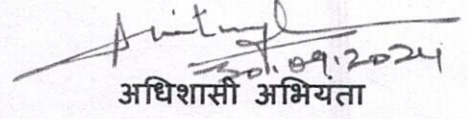 30.09.2024
अधिशासी अभियता